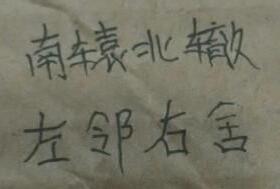 南辕北辙
左邻右舍